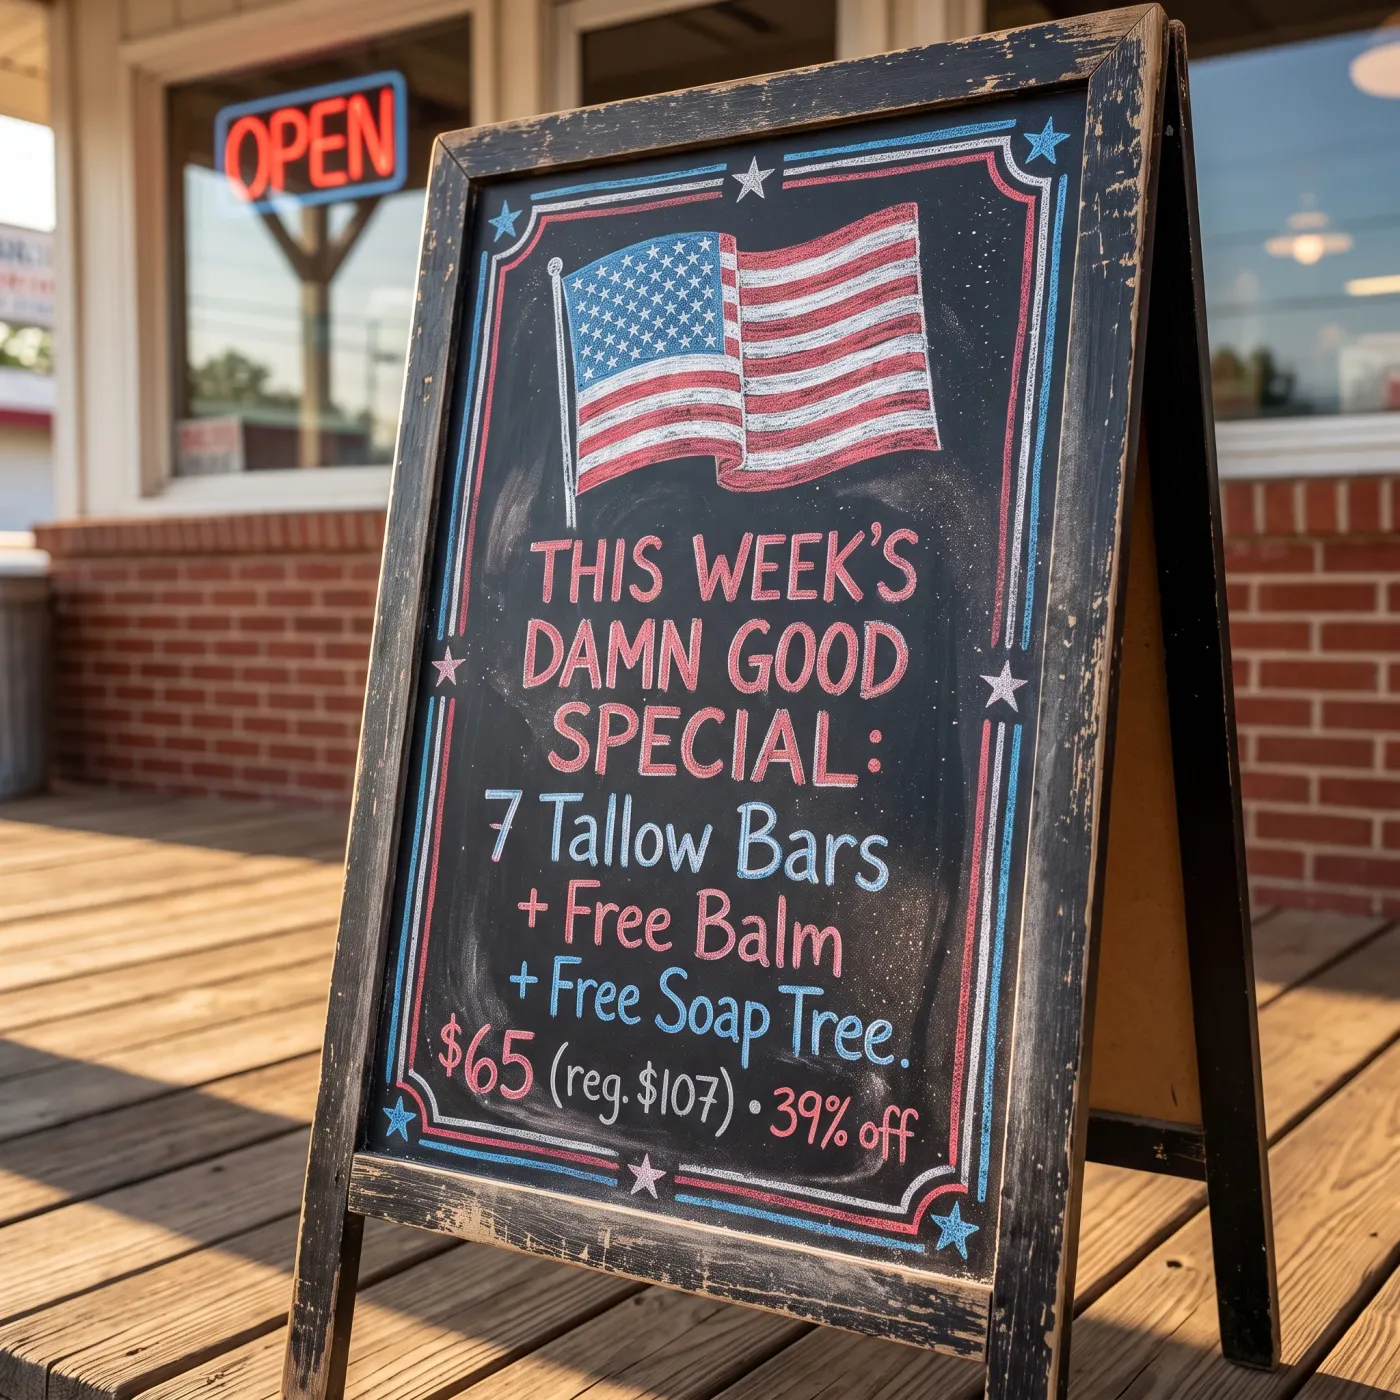 OPEN
THIS WEEK'S
DAMN GOOD
SPECIAL:
7 Tallow Bars
+ Free Balm
+ Free Soap Tree.
$65 (reg. $107) • 39% off